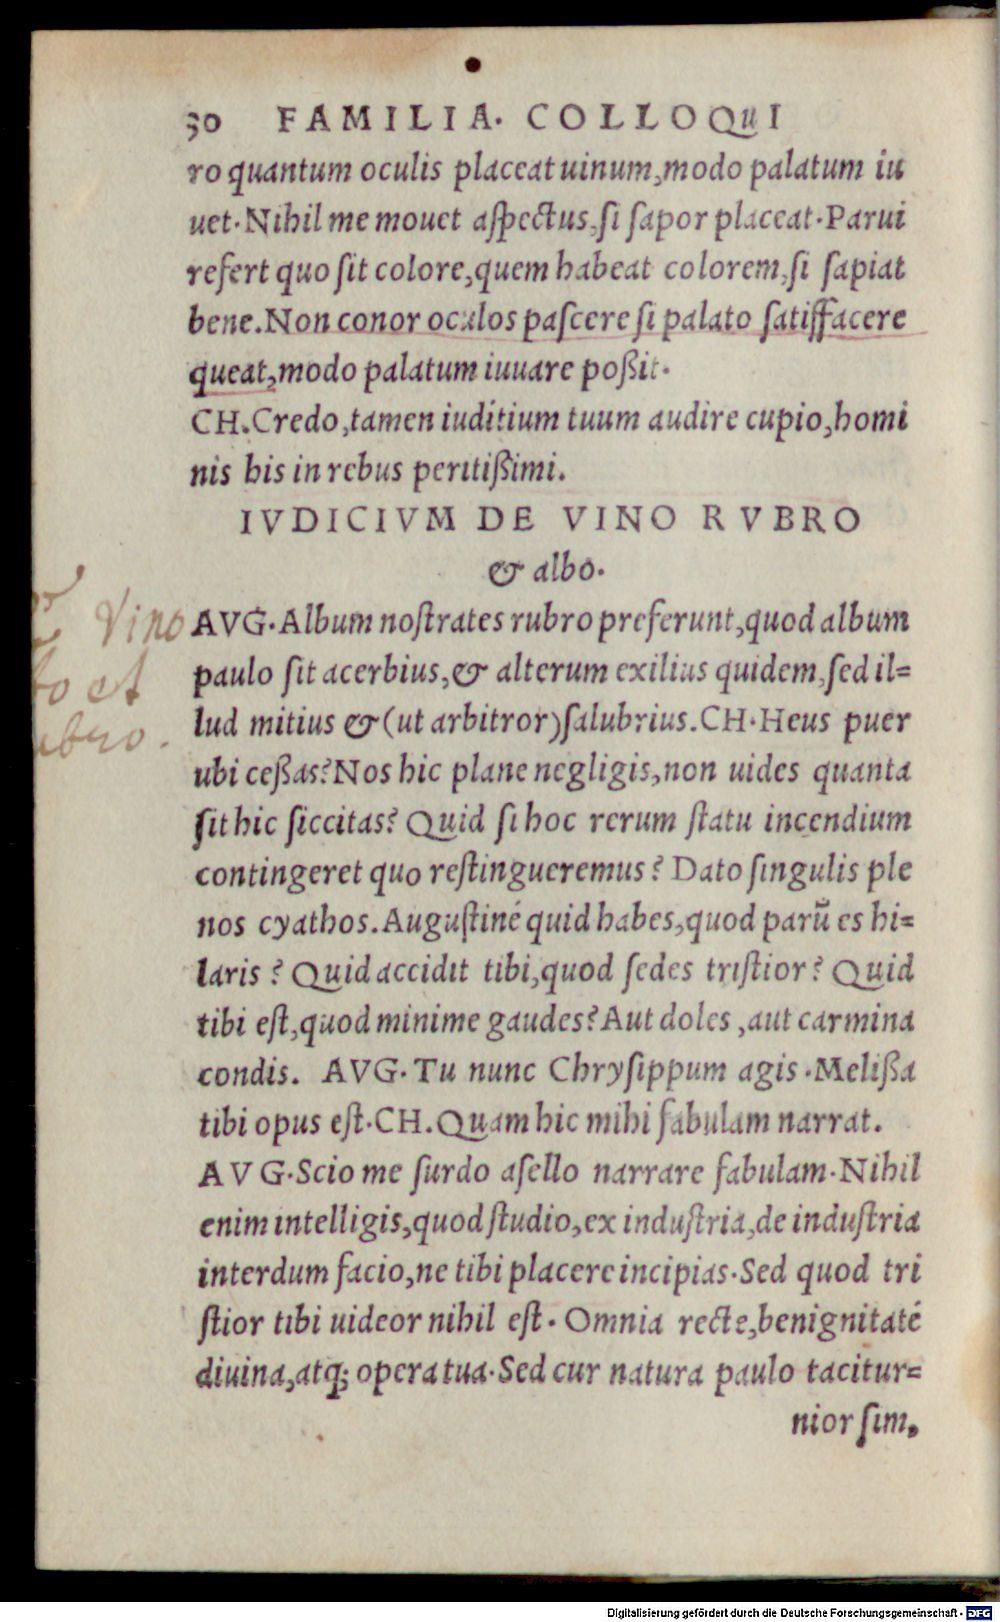 30 FAMILIA. COLLOQuI
ro quantum oculis placeat uinum, modo palatum iu
uet. Nihil me mouet aſpectus, ſi ſapor placeat. Parui
refert quo ſit colore, quem habeat colorem, ſi ſapiat
bene. Non conor oculos paſcere ſi palato ſatiſfacere
queat, modo palatum iuuare poßit.
CH. Credo, tamen iuditium tuum audire cupio, homi
nis his in rebus peritißimi.
IVDICIVM DE VINO RVBRO
& albo.
AVG. Album noſtrates rubro preferunt, quod album
paulo ſit acerbius, & alterum exilius quidem, ſed il=
lud mitius & (ut arbitror) ſalubrius. CH. Heus puer
ubi ceßas? Nos hic plane negligis, non uides quanta
ſit hic ſiccitas? Quid ſi hoc rerum ſtatu incendium
contingeret quo reſtingueremus? Dato ſingulis ple
nos cyathos. Auguſtiné quid habes, quod parũ es hi=
laris? Quid accidit tibi, quod ſedes triſtior? Quid
tibi eſt, quod minime gaudes? Aut doles, aut carmina
condis. AVG. Tu nunc Chryſippum agis. Melißa
tibi opus eſt. CH. Quam hic mihi fabulam narrat.
AVG. Scio me ſurdo aſello narrare fabulam. Nihil
enim intelligis, quod ſtudio, ex induſtria, de induſtria
interdum facio, ne tibi placere incipias. Sed quod tri
ſtior tibi uideor nihil eſt. Omnia recte, benignitaté
diuina, atq; opera tua. Sed cur natura paulo tacitur=
nior ſim,
Vino
et
Digitalisierung gefördert durch die Deutsche Forschungsgemeinschaft - DFG